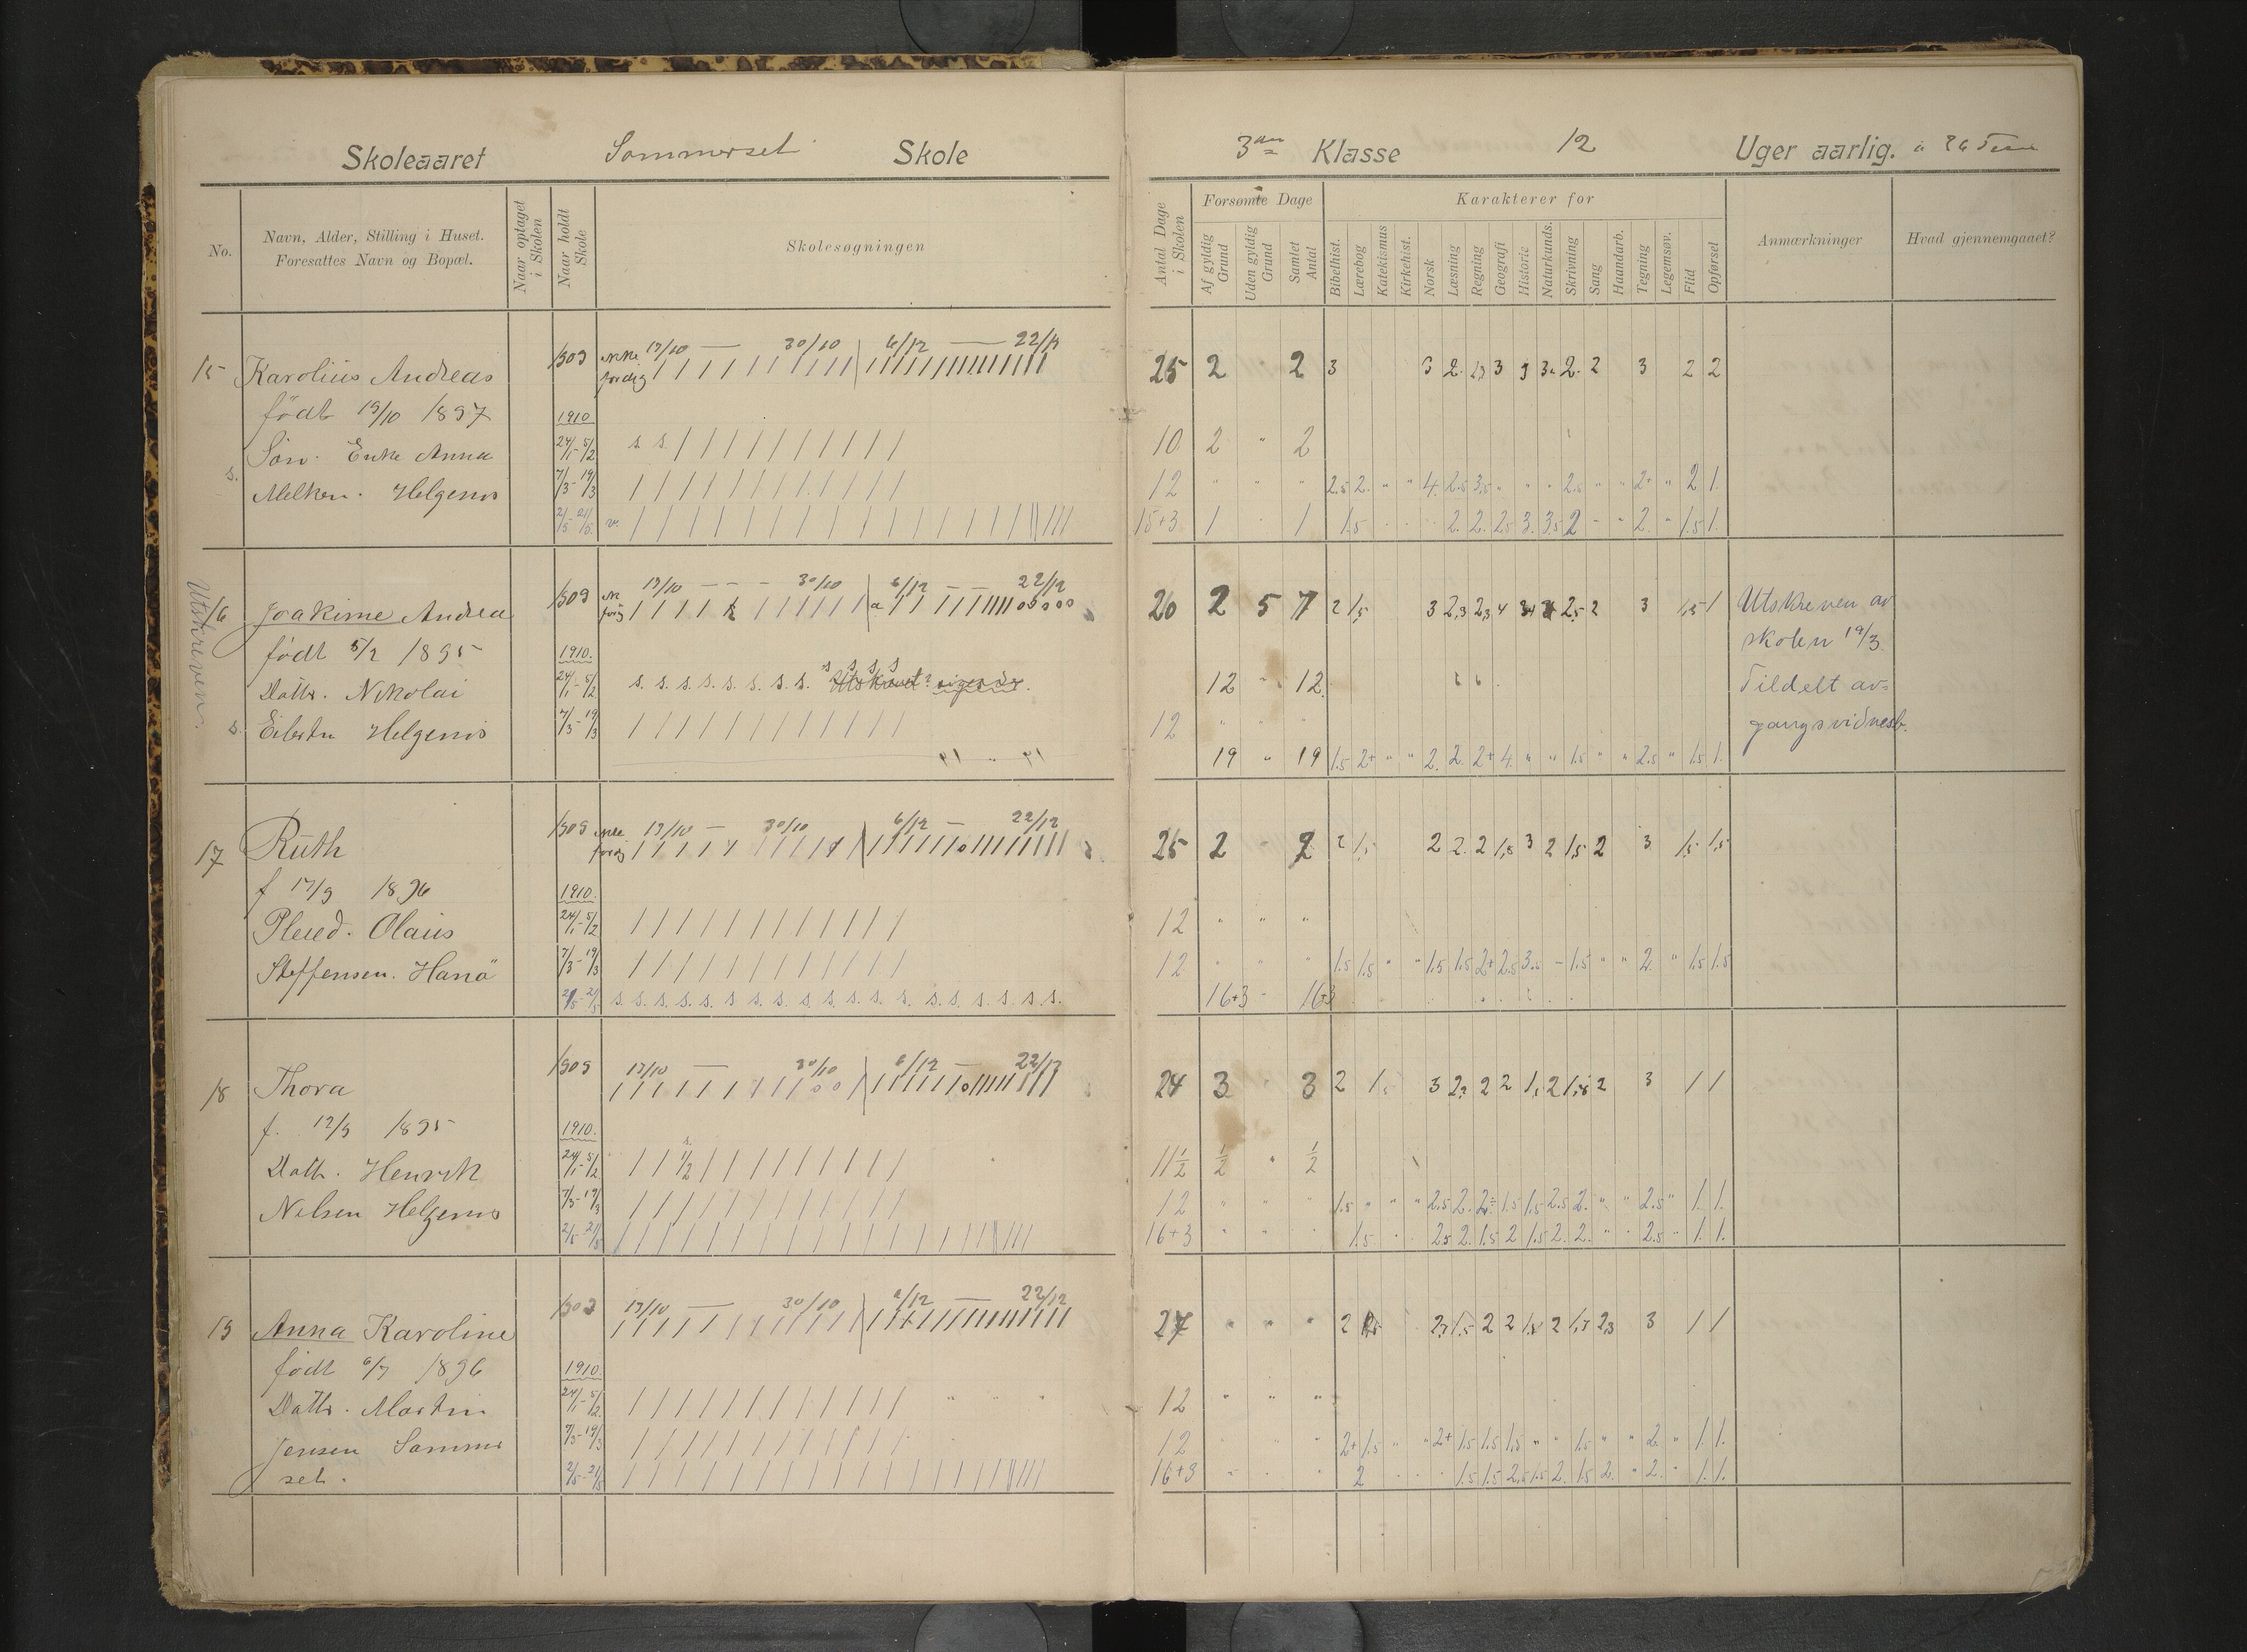 Skoleaaret Sommerset Skole
3die Klasse 12 Uger aarlig. à 36 Tim
No. Navn, Alder, Stilling i Huset. Foresattes Navn og Bopæl. Naar optaget i Skolen Naar holdt Skole Skolesøgningen
Antal Dage i Skolen Forsømte Dage Af gyldig Grund Uden gyldig Grund Samlet Antal
Karakterer for Bibelhist. Lærebog Katekismus Kirkehist. Norsk Læsning Regning Geografi Historie Naturkunds. Skrivning Sang Haandarb. Tegning Legemsøv. Flid Opførsel
Anmærkninger Hvad gjennemgaaet?
1909 ikke 19/10 — 30/10 6/12 — 22/12
15 Karolius Andreas færdig 25 2 2 3 3 2 3 2 2 3 2 2
født 19/10 1897 1910
Søn. Enke Anna 24/1-5/2 s. s. 10 2 " 2
s.
Melker. Helgenes 7/3-19/3 12 " " " 2.5 2. " " 4. 2.5 3.5 " " " 2.5 " " 2+ " 2 1.
2/5-21/5 v. 15+3 1 " 1 1.5 2. 2. 2.5 3. 3.5 2 - " 2. " 1.5 1.
Utskreven.
1909 19/10 - - - 30/10 6/12 — 22/12
16 Joakime Andrea 20 2 5 7 2 1,5 3 2,3 2,3 4 2,5 2 3 1,5 1 Utskreven av
født 5/2 1895 1910. skolen 19/3.
Datts. Nikolai 24/1-5/2 s. s. s. s. s. s. s. s. s s s s 12 " 12. Tildelt av=
s. Eilertsen Helgenes 7/3-19/3 12 " gangsvidnesb.
19 " 19 1.5 2+ " " 2. 2. 2+ 4. " " 1.5 " " 2.5 " 1.5 1.
1909 ikke 19/10 — 30/10 6/12 — 22/12
17 Ruth 25 2 2 2 1,5 2 2 2 1,8 3 2 1,5 2 3 1,5 1,5
f 17/9 1896 1910.
Pleied. Olaus 24/1-5/2 12 " " "
Steffensen. Hanö 7/3-19/3 12 " " " 1.5 1.5 " " 1.5 1.5 2+ 2.5 3.5 - 1.5 " " 2. " 1.5 1.5
2/5-21/5 s. s. s. s. s. s. s. s. s. s. s. s. s. s. s. s. s. s. s. 16+3 - 16+3
1909 19/10 — 30/10 6/12 — 22/12
18 Thora 24 3 3 2 1,5 3 2 2 2 3 1 1
f. 12/9 1895 1910.
Datts. Henrik 24/1-5/2 s. 1/2 11 1/2 1/2 " 1/2
Nilsen Helgenes 7/3-19/3 12 " " " 1.5 " " " 2.5 2. 2÷ 1.5 1.5 2.5 2. " " 2.5 " 1. 1.
2/5-21/5 16+3 " " " 1.5 2.5 2. 1.5 2 1.5 2. 2. " " 2.5 " 1. 1.
1909 19/10 — 30/10 6/12 — 22/12
19 Anna Karoline 27 " " " 2 1,5 2 2 2 3 1 1
født 6/7 1896 1910.
Datts. Martin 24/1-5/2 12 " " "
Jensen Sommer 7/3-19/3 12 " " " 2+ 1.5 " " 2+ 1.5 1.5 1.5 " " 1.5 " " 2. " 1. 1.
set. 2/5-21/5 16+3 - " " 2 1.5 1.5 2.5 1.5 2. 1.5 2. " 2. " 1. 1.